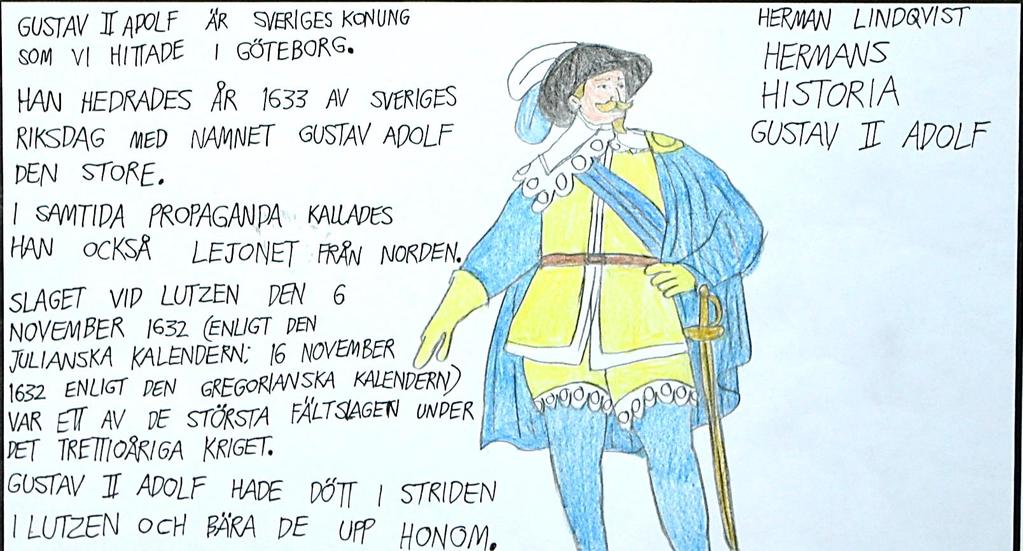 GUSTAV II ADOLF ÄR SVERIGES KONUNG
SOM VI HITTADE I GÖTEBORG.
HAN HEDRADES ÅR 1633 AV SVERIGES
RIKSDAG MED NAMNET GUSTAV ADOLF
DEN STORE.
I SAMTIDA PROPAGANDA KALLADES
HAN OCKSÅ LEJONET FRÅN NORDEN.
SLAGET VID LUTZEN DEN 6
NOVEMBER 1632 (ENLIGT DEN
JULIANSKA KALENDERN; 16 NOVEMBER
1632 ENLIGT DEN GREGORIANSKA KALENDERN)
VAR ETT AV DE STÖRSTA FÄLTSLAGEN UNDER
DET TRETTIOÅRIGA KRIGET.
GUSTAV II ADOLF HADE DÖTT I STRIDEN
I LUTZEN OCH BÄRA DE UPP HONOM.
HERMAN LINDQVIST
HERMANS
HISTORIA
GUSTAV II ADOLF